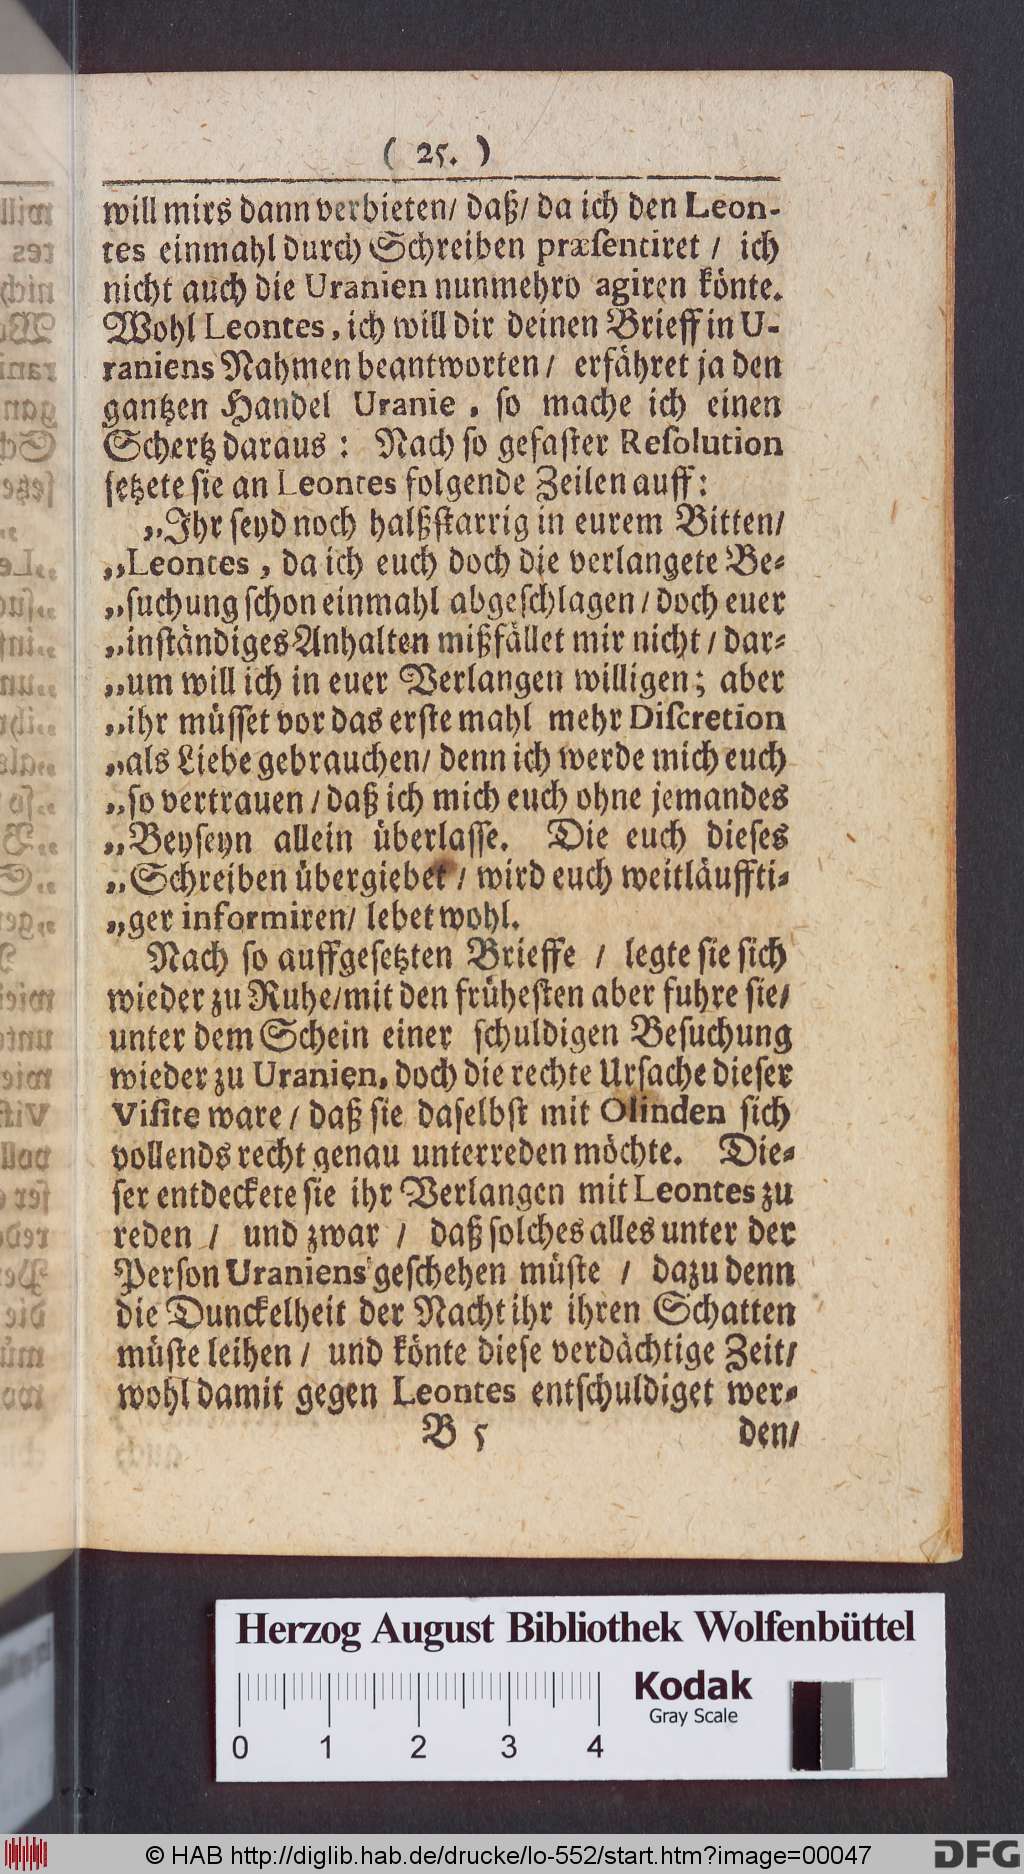 ( 25. )
will mirs dann verbieten/ daß/ da ich den Leon-
tes einmahl durch Schreiben præsentiret / ich
nicht auch die Uranien nunmehro agiren könte.
Wohl Leontes, ich will dir deinen Brieff in U-
raniens Nahmen beantworten / erfähret ja den
gantzen Handel Uranie, so mache ich einen
Schertz daraus: Nach so gefaster Resolution
setzete sie an Leontes folgende Zeilen auff:
„Ihr seyd noch halßstarrig in eurem Bitten/
„Leontes, da ich euch doch die verlangete Be-
„suchung schon einmahl abgeschlagen / doch euer
„inständiges Anhalten mißfället mir nicht / dar-
„um will ich in euer Verlangen willigen; aber
„ihr müsset vor das erste mahl mehr Discretion
„als Liebe gebrauchen/ denn ich werde mich euch
„so vertrauen / daß ich mich euch ohne jemandes
„Beyseyn allein überlasse. Die euch dieses
„Schreiben übergiebet / wird euch weitläuffti-
„ger informiren/ lebet wohl.
Nach so auffgesetzten Brieffe / legte sie sich
wieder zu Ruhe/mit den frühesten aber fuhre sie/
unter dem Schein einer schuldigen Besuchung
wieder zu Uranien, doch die rechte Ursache dieser
Visite ware / daß sie daselbst mit Olinden sich
vollends recht genau unterreden möchte. Die-
ser entdeckete sie ihr Verlangen mit Leontes zu
reden / und zwar / daß solches alles unter der
Person Uraniens geschehen müste / dazu denn
die Dunckelheit der Nacht ihr ihren Schatten
müste leihen / und könte diese verdächtige Zeit/
wohl damit gegen Leontes entschuldiget wer-
B 5 den/
Herzog August Bibliothek Wolfenbüttel
Kodak
Gray Scale
0 1 2 3 4
© HAB http://diglib.hab.de/drucke/lo-552/start.htm?image=00047
DFG